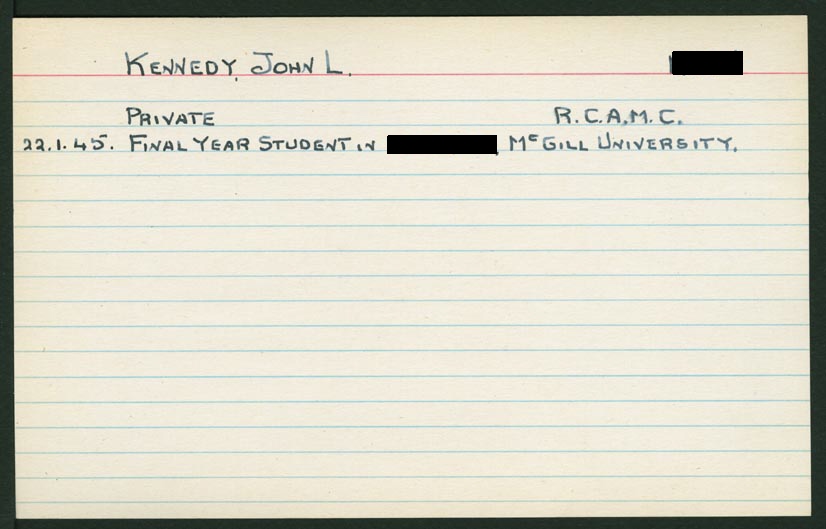 KENNEDY, JOHN L.
PRIVATE R.C.A.M.C.
22.1.45. FINAL YEAR STUDENT IN , McGILL UNIVERSITY.